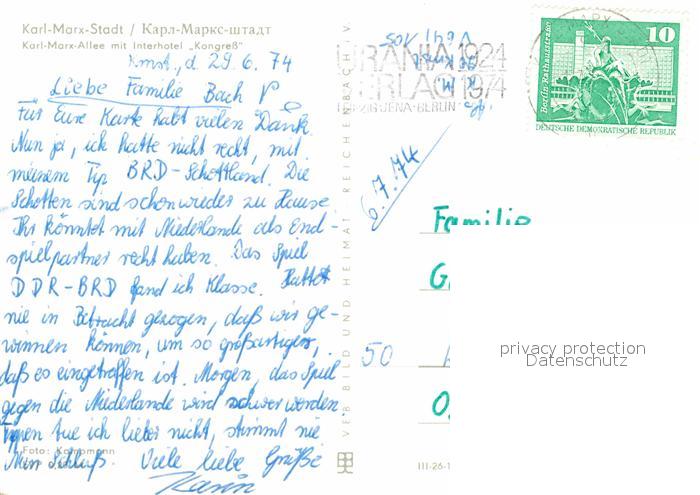 Karl-Marx-Stadt / Карл-Маркс-штадт
Karl-Marx-Allee mit Interhotel „Kongreß"
Kmst., d. 29.6.74
Liebe Familie Bach
Für Eure Karte habt vielen Dank.
Nun ja, ich hatte nicht recht, mit
meinem Tip BRD-Schottland. Die
Schotten sind schon wieder zu Hause.
Ihr könntet mit Niederlande als End-
spielpartner recht haben. Das Spiel
DDR-BRD fand ich Klasse. Hattet
nie in Betracht gezogen, daß wir ge-
winnen können, um so großartiger,
daß es eingetroffen ist. Morgen, das Spiel
gegen die Niederlande wird schwer werden.
Tippen tue ich lieber nicht, stimmt nie
Nun Schluß. Viele liebe Grüße
Karin
Foto: Kampmann
VEB BILD UND HEIMAT REICHENBACH V.
III-26-1
URANIA 1924
VERLAG 1974
LEIPZIG·JENA·BERLIN
10
Berlin, Rathausstrasse
DEUTSCHE DEMOKRATISCHE REPUBLIK
6.7.74
Familie
G
50
O
privacy protection
Datenschutz